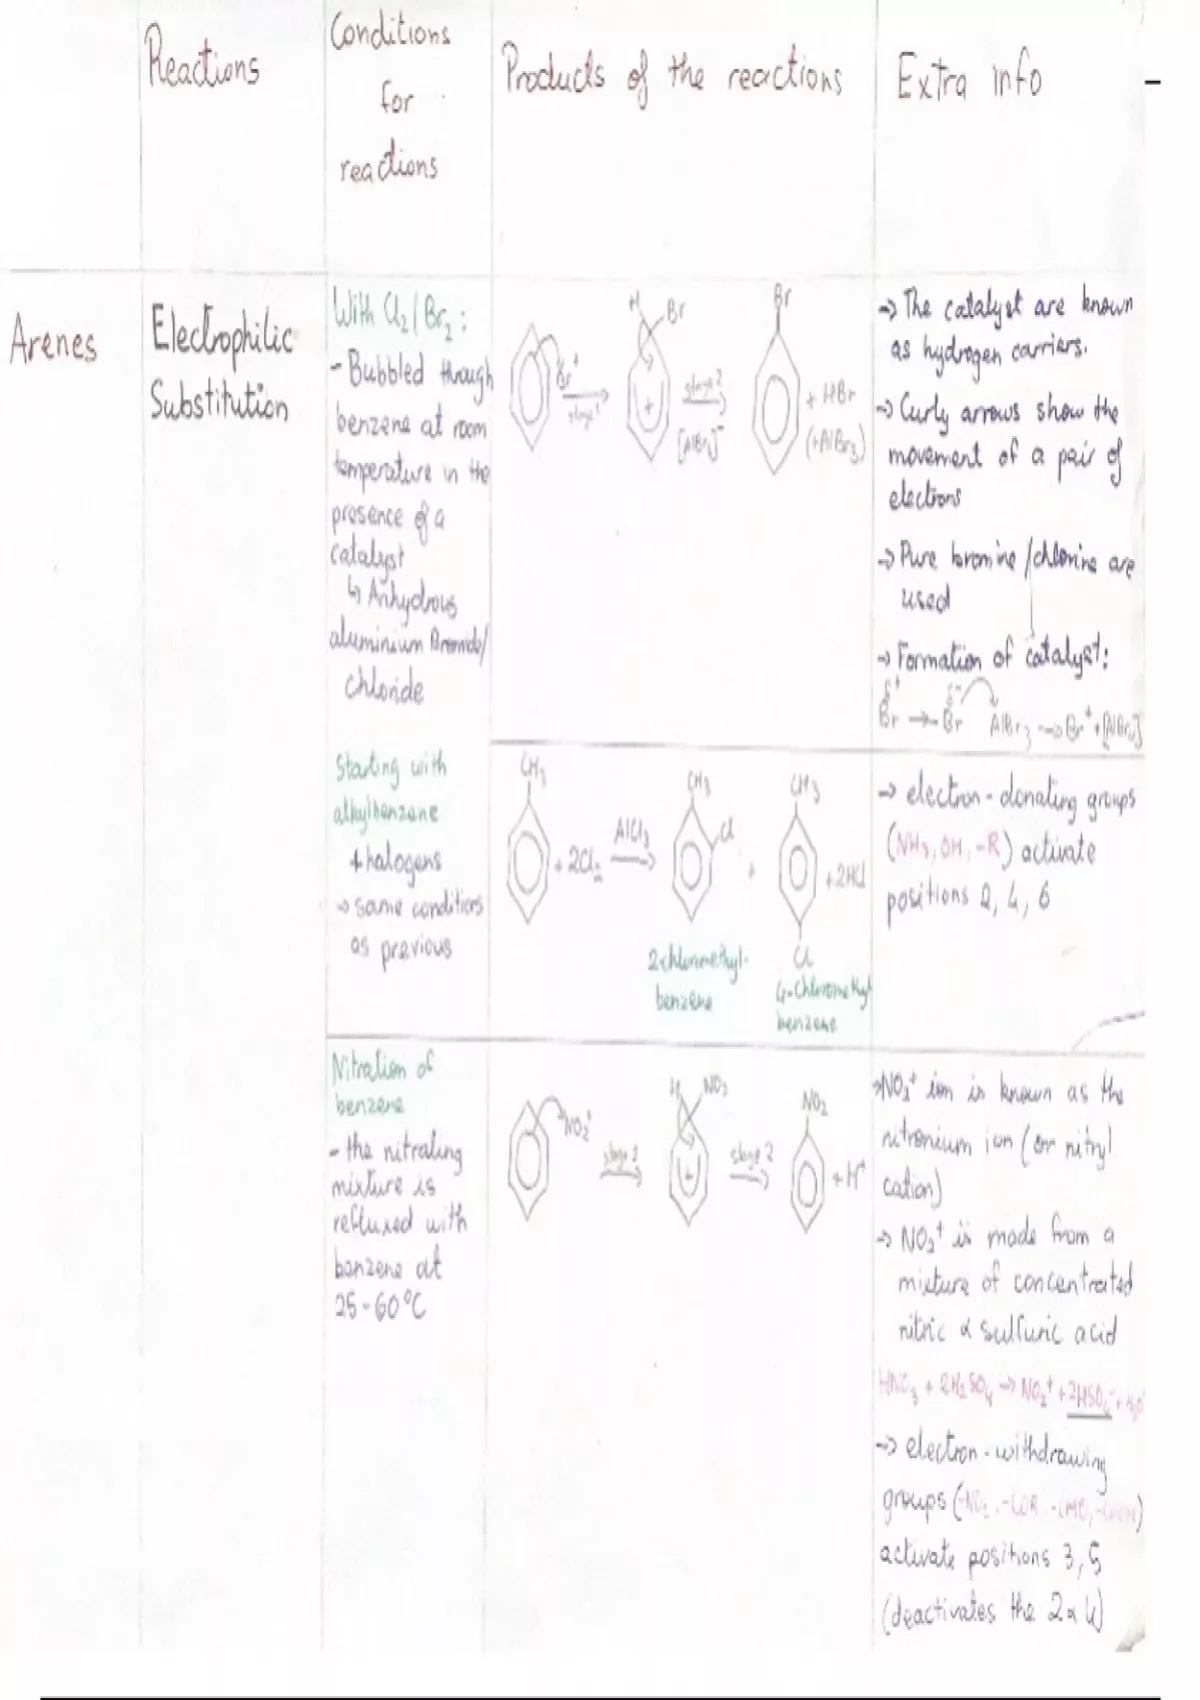 Reactions
Conditions
for
reactions
Products of the reactions
Extra info
Arenes
Electrophilic
Substitution
With Cl₂/Br₂:
- Bubbled through
benzene at room
temperature in the
presence of a
catalyst
↳ Anhydrous
aluminium Bromide/
chloride
Br⁺
stage 1
H Br
+
stage 2
[AlBr₄]⁻
Br
+ HBr
(+AlBr₃)
→ The catalyst are known
as hydrogen carriers.
→ Curly arrows show the
movement of a pair of
electrons
→ Pure bromine/chlorine are
used
→ Formation of catalyst:
δ+ δ-
Br → Br AlBr₃ → Br⁺ + [AlBr₄]
Starting with
alkylbenzene
+ halogens
→ same conditions
as previous
CH₃
+ 2Cl₂
AlCl₃
CH₃
Cl
+
CH₃
Cl
+ 2HCl
2-chloromethyl-
benzene
4-chloromethyl
benzene
→ electron-donating groups
(NH₂, OH, -R) activate
positions 2, 4, 6
Nitration of
benzene
- the nitrating
mixture is
refluxed with
benzene at
25-60°C
NO₂⁺
H NO₂
+
stage 2
NO₂
+ H⁺
→ NO₂⁺ ion is known as the
nitronium ion (or nitryl
cation)
→ NO₂⁺ is made from a
mixture of concentrated
nitric & sulfuric acid
HNO₃ + 2H₂SO₄ → NO₂⁺ + 2HSO₄⁻ +
→ electron-withdrawing
groups (-NO₂, -COR, -CHO, -COOH)
activate positions 3, 5
(deactivates the 2 & 4)